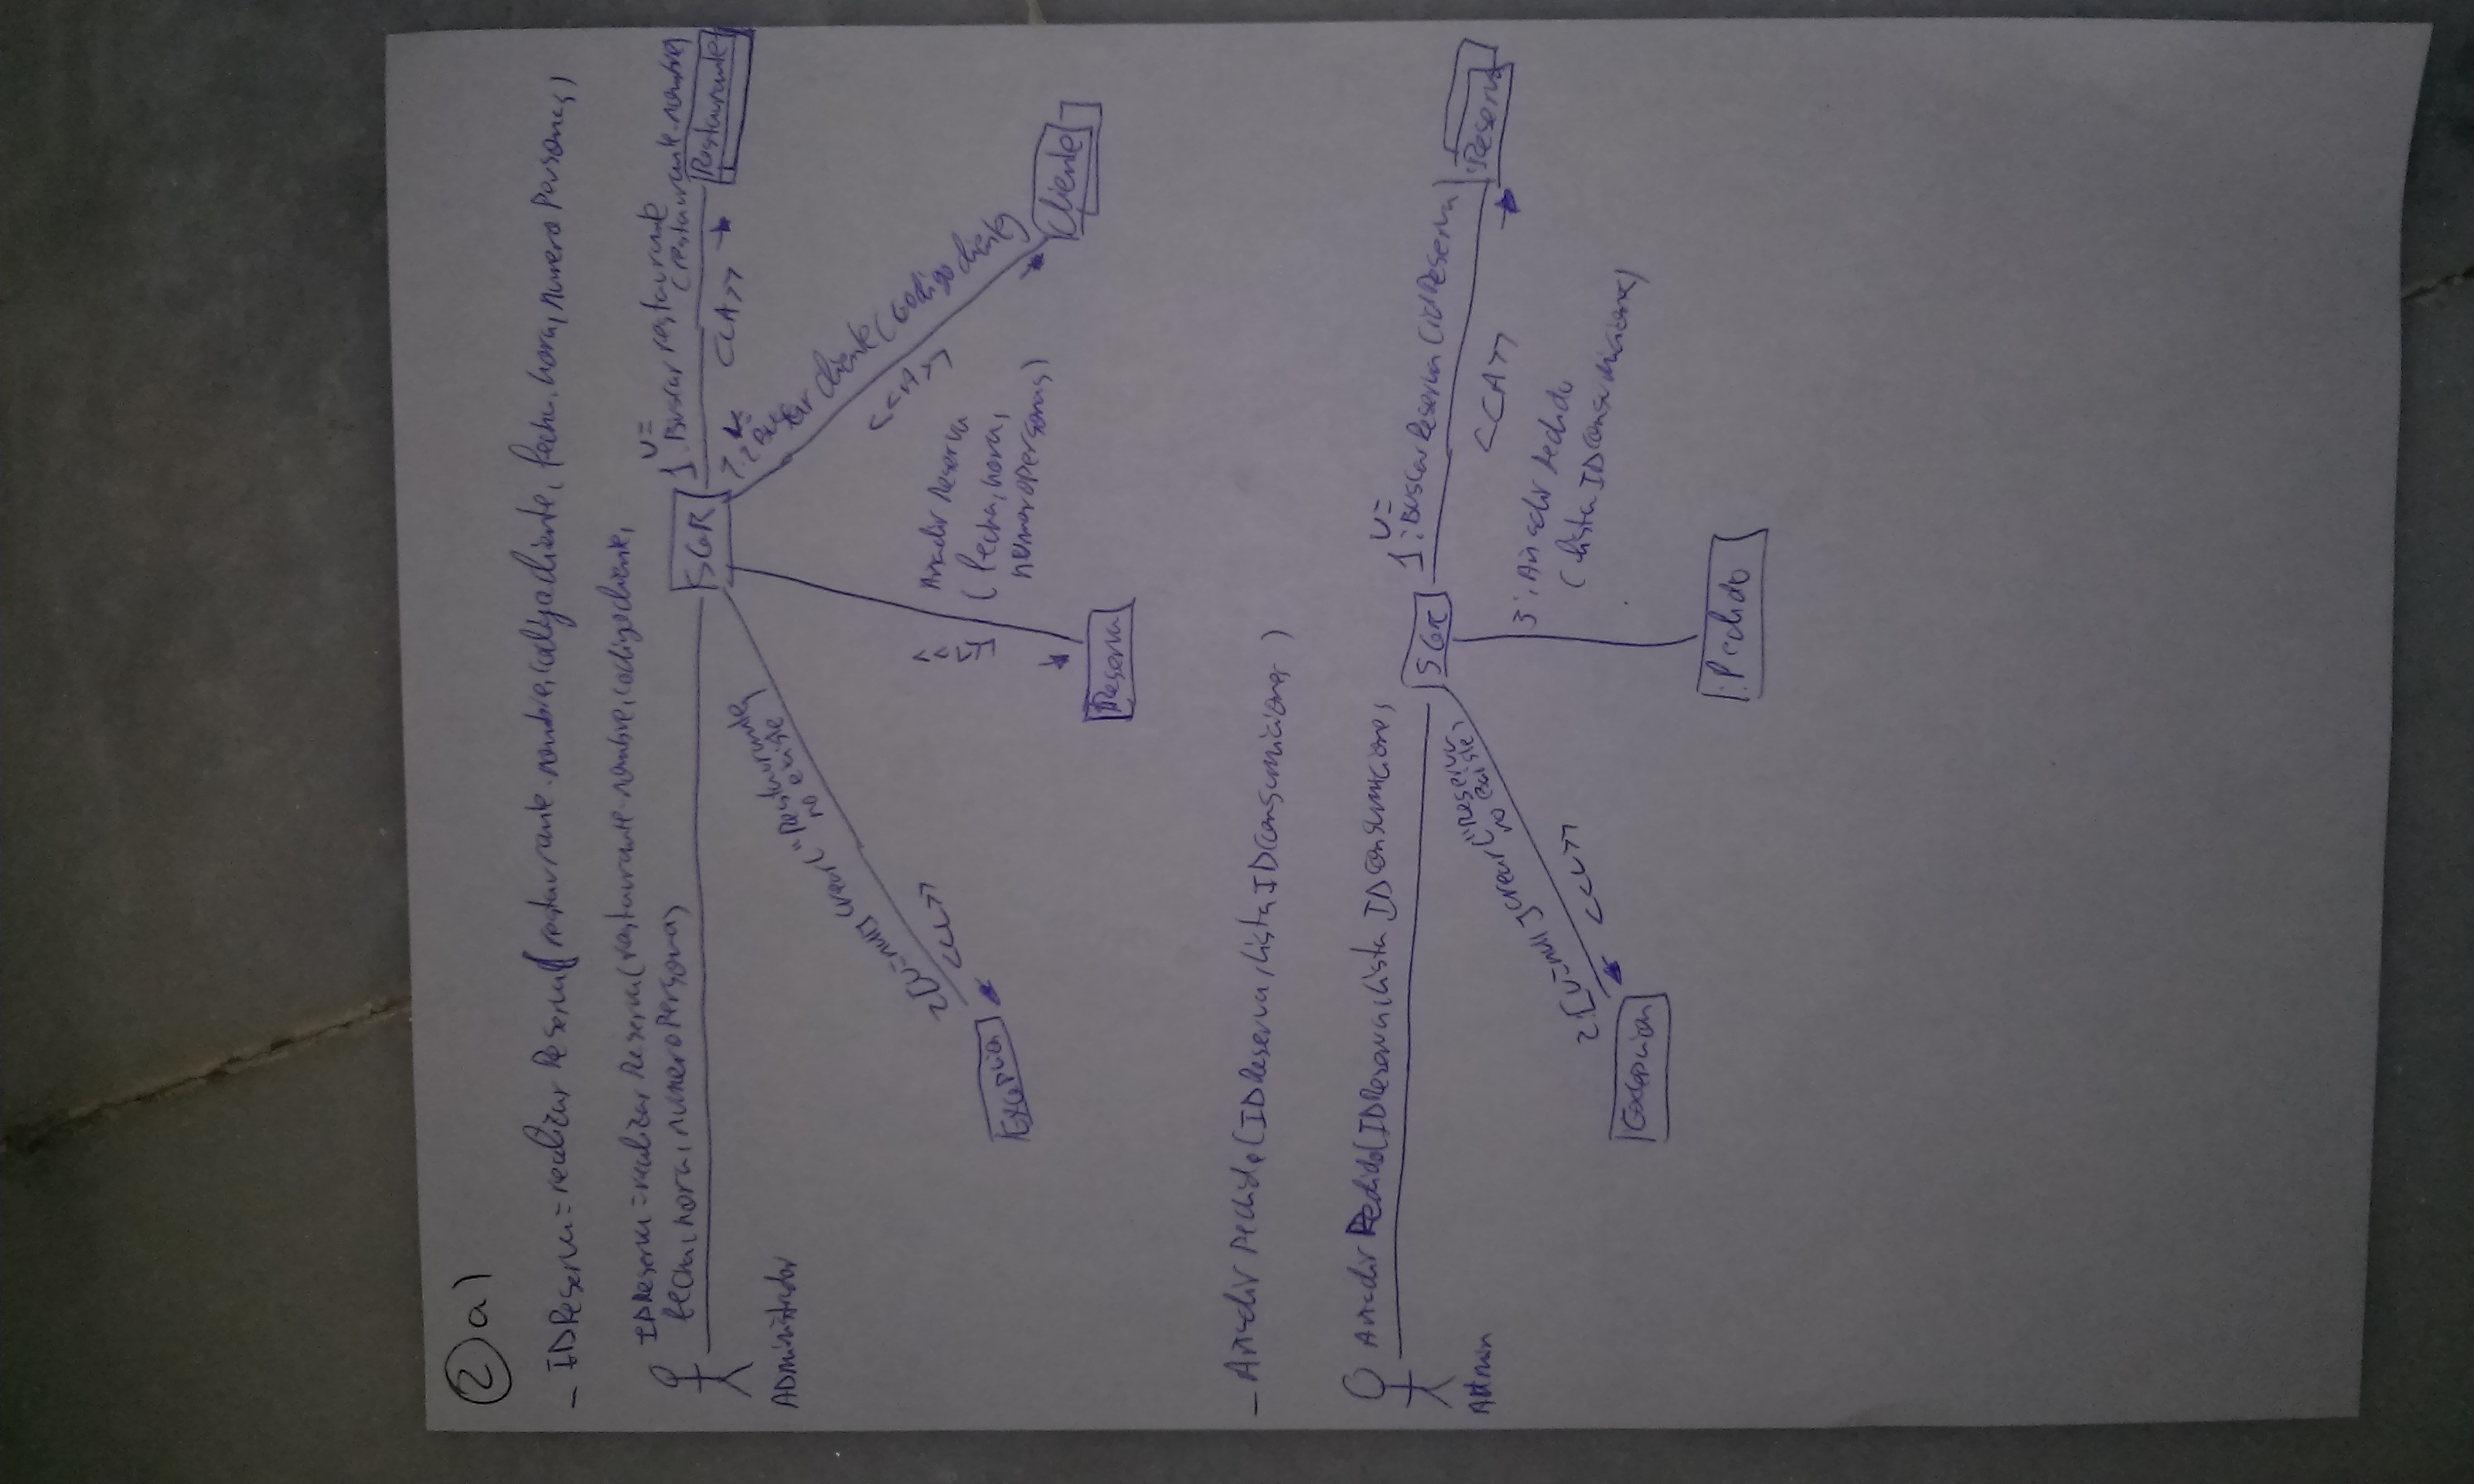 ② a)
- IDReserva=realizar Reserva(restaurante.nombre,codigocliente, fecha.hora,numero Personas)
IDReserva=realizar Reserva(restaurante.nombre,codigocliente,
fecha,hora,numeroPersonas)
Administrador
SGR
v=
1 Buscar restaurante
(restaurante.nombre)
<<A>>
Restaurante
2[v=null] crear("Restaurante
no existe
<<L>>
Excepcion
<<L>>
Añadir Reserva
(fecha,hora,
numeroPersonas)
Reserva
v=
Buscar cliente(codigocliente)
<<A>>
Cliente
- Añadir Pedido(IDReserva,listaIDConsumiciones)
Añadir Pedido(IDReserva,lista IDconsumiciones
Admin
SGR
v=
1:BuscarReserva(idReserva)
<<A>>
:Reserva
2:[v=null]crear("Reserva
no existe)
<<L>>
Excepcion
3:Añadir Pedido
(listaIDConsumiciones)
:Pedido